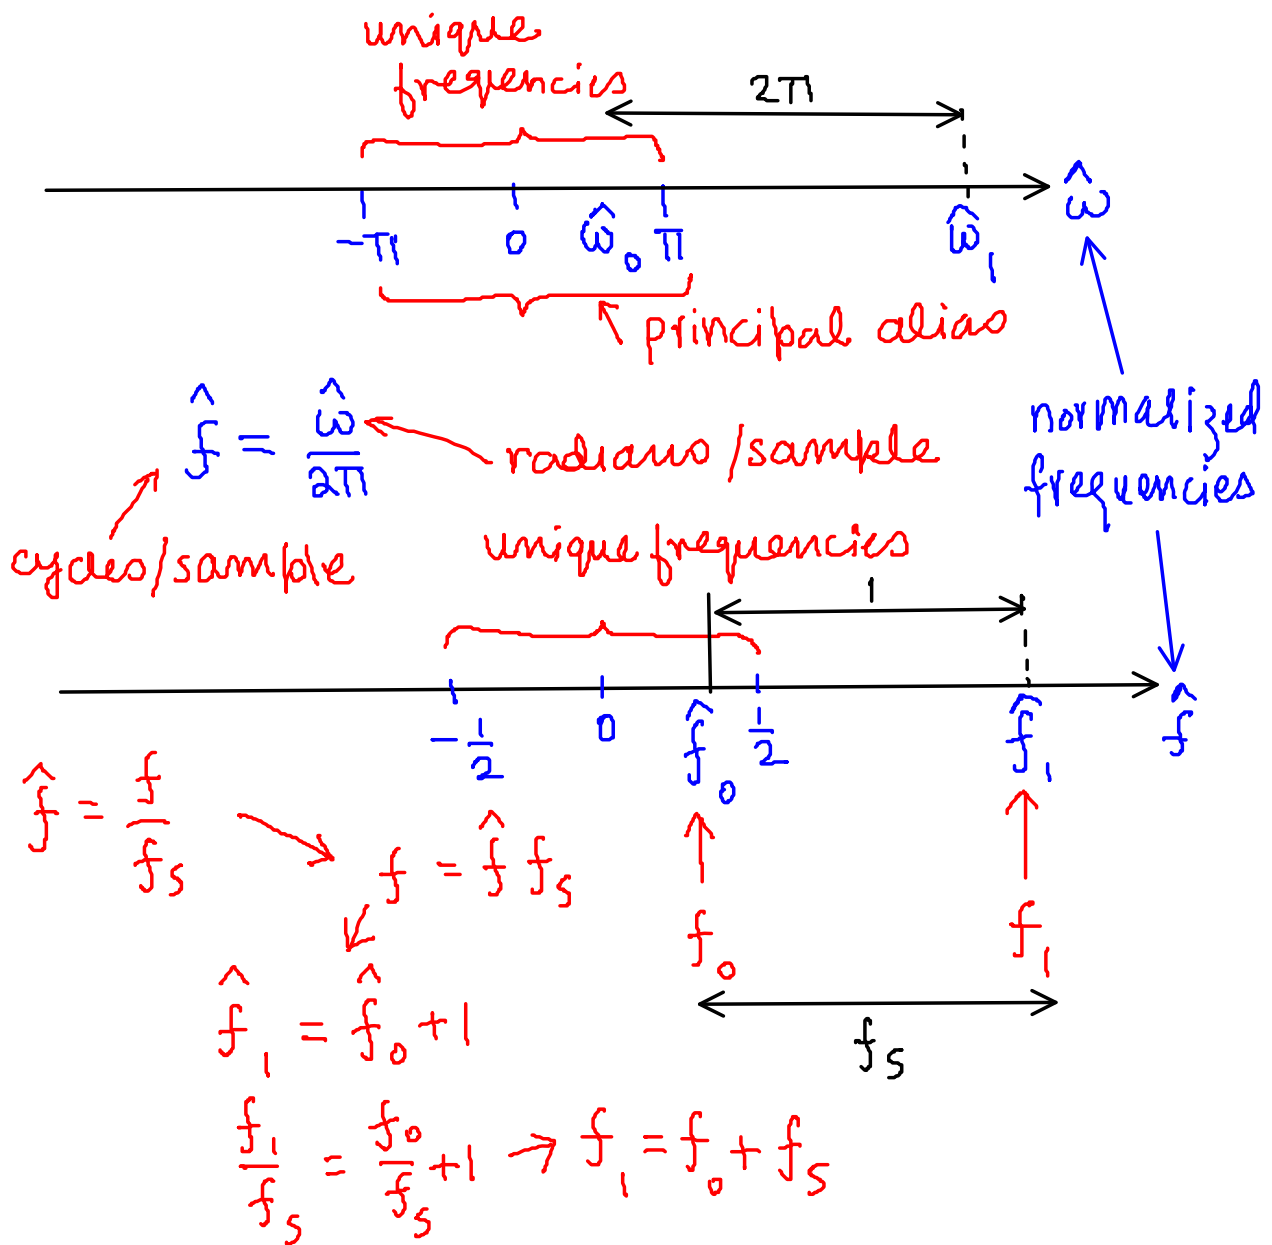 unique
frequencies
2π
-π 0 ω̂₀ π ω̂₁ ω̂
principal alias
f̂ = ω̂/2π
radians/sample
cycles/sample
normalized
frequencies
unique frequencies
1
-1/2 0 f̂₀ 1/2 f̂₁ f̂
f̂ = f/fₛ
f = f̂ fₛ
f₀ f₁
fₛ
f̂₁ = f̂₀ + 1
f₁/fₛ = f₀/fₛ + 1 → f₁ = f₀ + fₛ